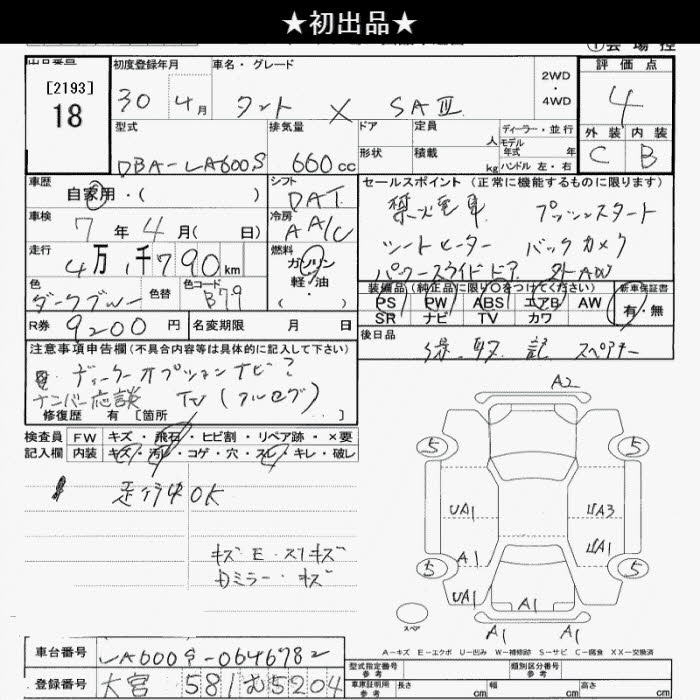 ★初出品★
[2193]
18
初度登録年月
30 年 4月
車名・グレード
タント X SAⅢ
2WD
・
4WD
評価点
4
外装 内装
C B
型式
DBA-LA600S
排気量
660 cc
ドア
形状
定員 人
積載 kg
ディーラー・並行
モデル年式 年
ハンドル 左・右
車歴
自家用・( )
シフト
DAT
冷房
AAC
車検
7年 4月( 日)
走行
4万 千790km
燃料
ガソリン
軽・油
色
ダークブルー
色替
色コード
B79
R券 9200円
名変期限 月 日
セールスポイント(正常に機能するものに限ります)
禁火電車 プッシュスタート
シートヒーター バックカメラ
パワースライドドア 外AW
装備品(純正品に限り○をつけてください)
PS PW ABS エアB AW
SR ナビ TV カワ
新車保証書
有・無
後日品
取 記 スペアキー
注意事項申告欄(不具合内容等は具体的に記入して下さい)
ディーラーオプションナビ?
ナンバー応談 TV(フルセグ)
修復歴 有 [箇所
検査員記入欄
FW キズ・飛石・ヒビ割・リペア跡・×要
内装 キズ・汚れ・コゲ・穴・スレ・キレ・破レ
走行中OK
キズ・E・スリキズ
カミラー・キズ
A2
5 5
UA1 UA3
A1 UA1
5 5
UA1 A1
A1
スペア
A-キズ E-エクボ U-凹み W-補修跡 S-サビ C-腐食 XX-交換済
車台番号 LA600S-0646782
登録番号 大宮 581む5204
型式指定番号
参考
類別区分番号
参考
車庫証明用
参考
長さ cm 幅 cm 高さ cm